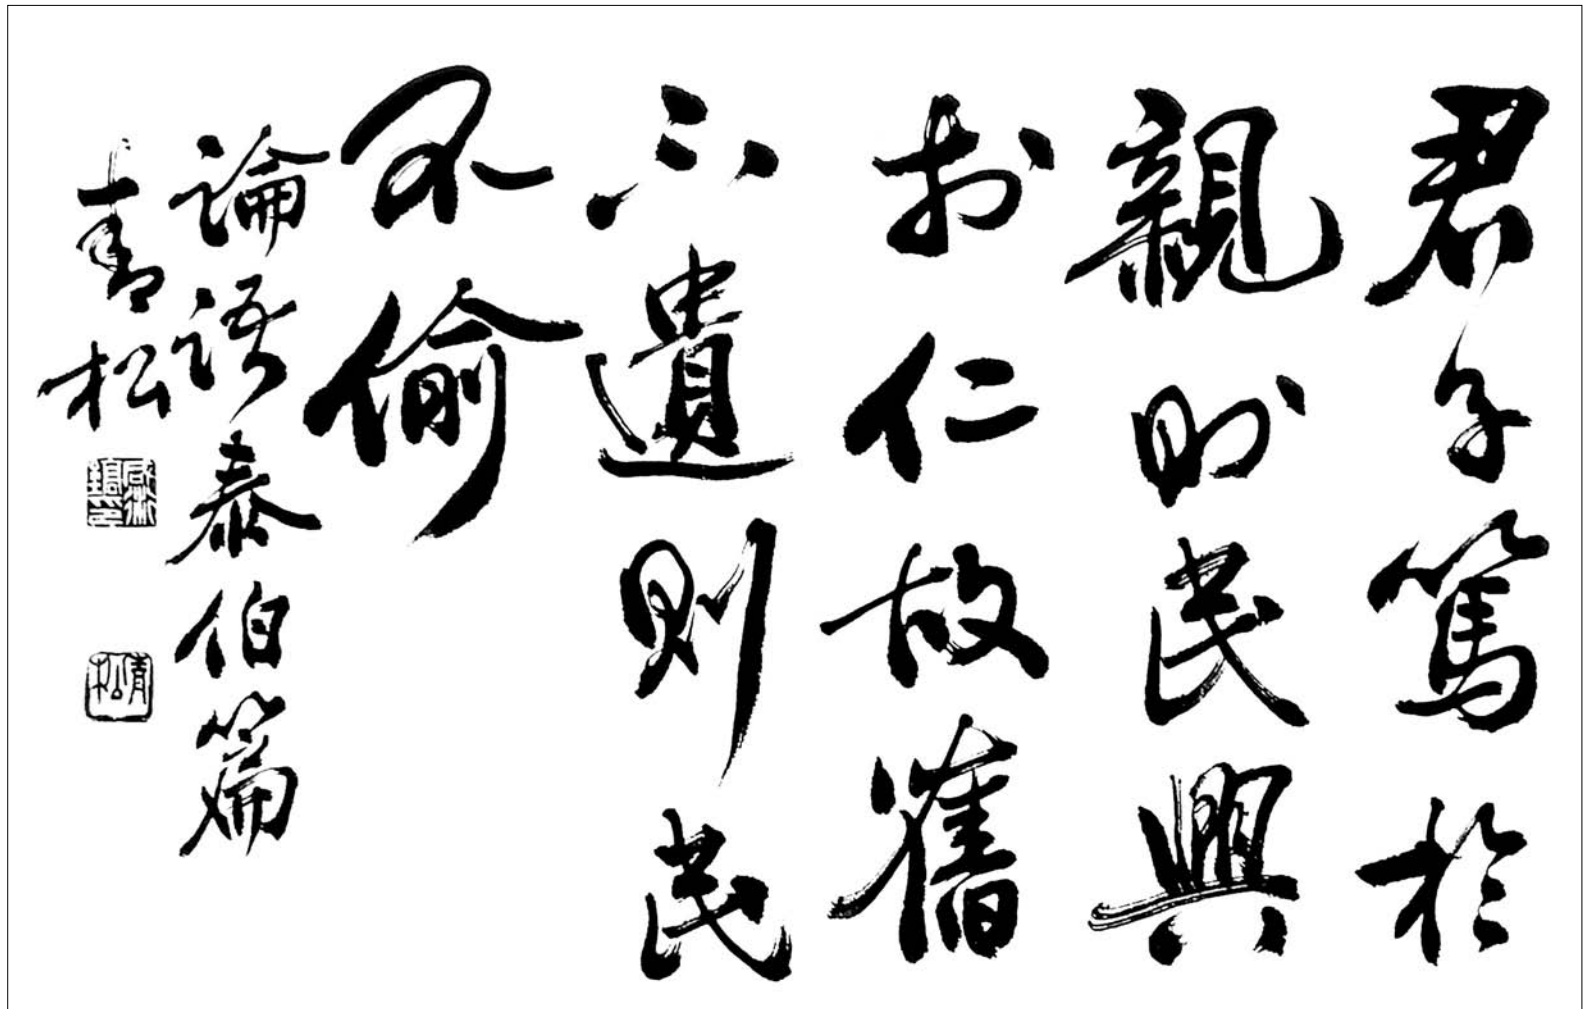 君子篤於
親則民興
於仁故舊
不遺則民
不偷
論語泰伯篇
青松
青松